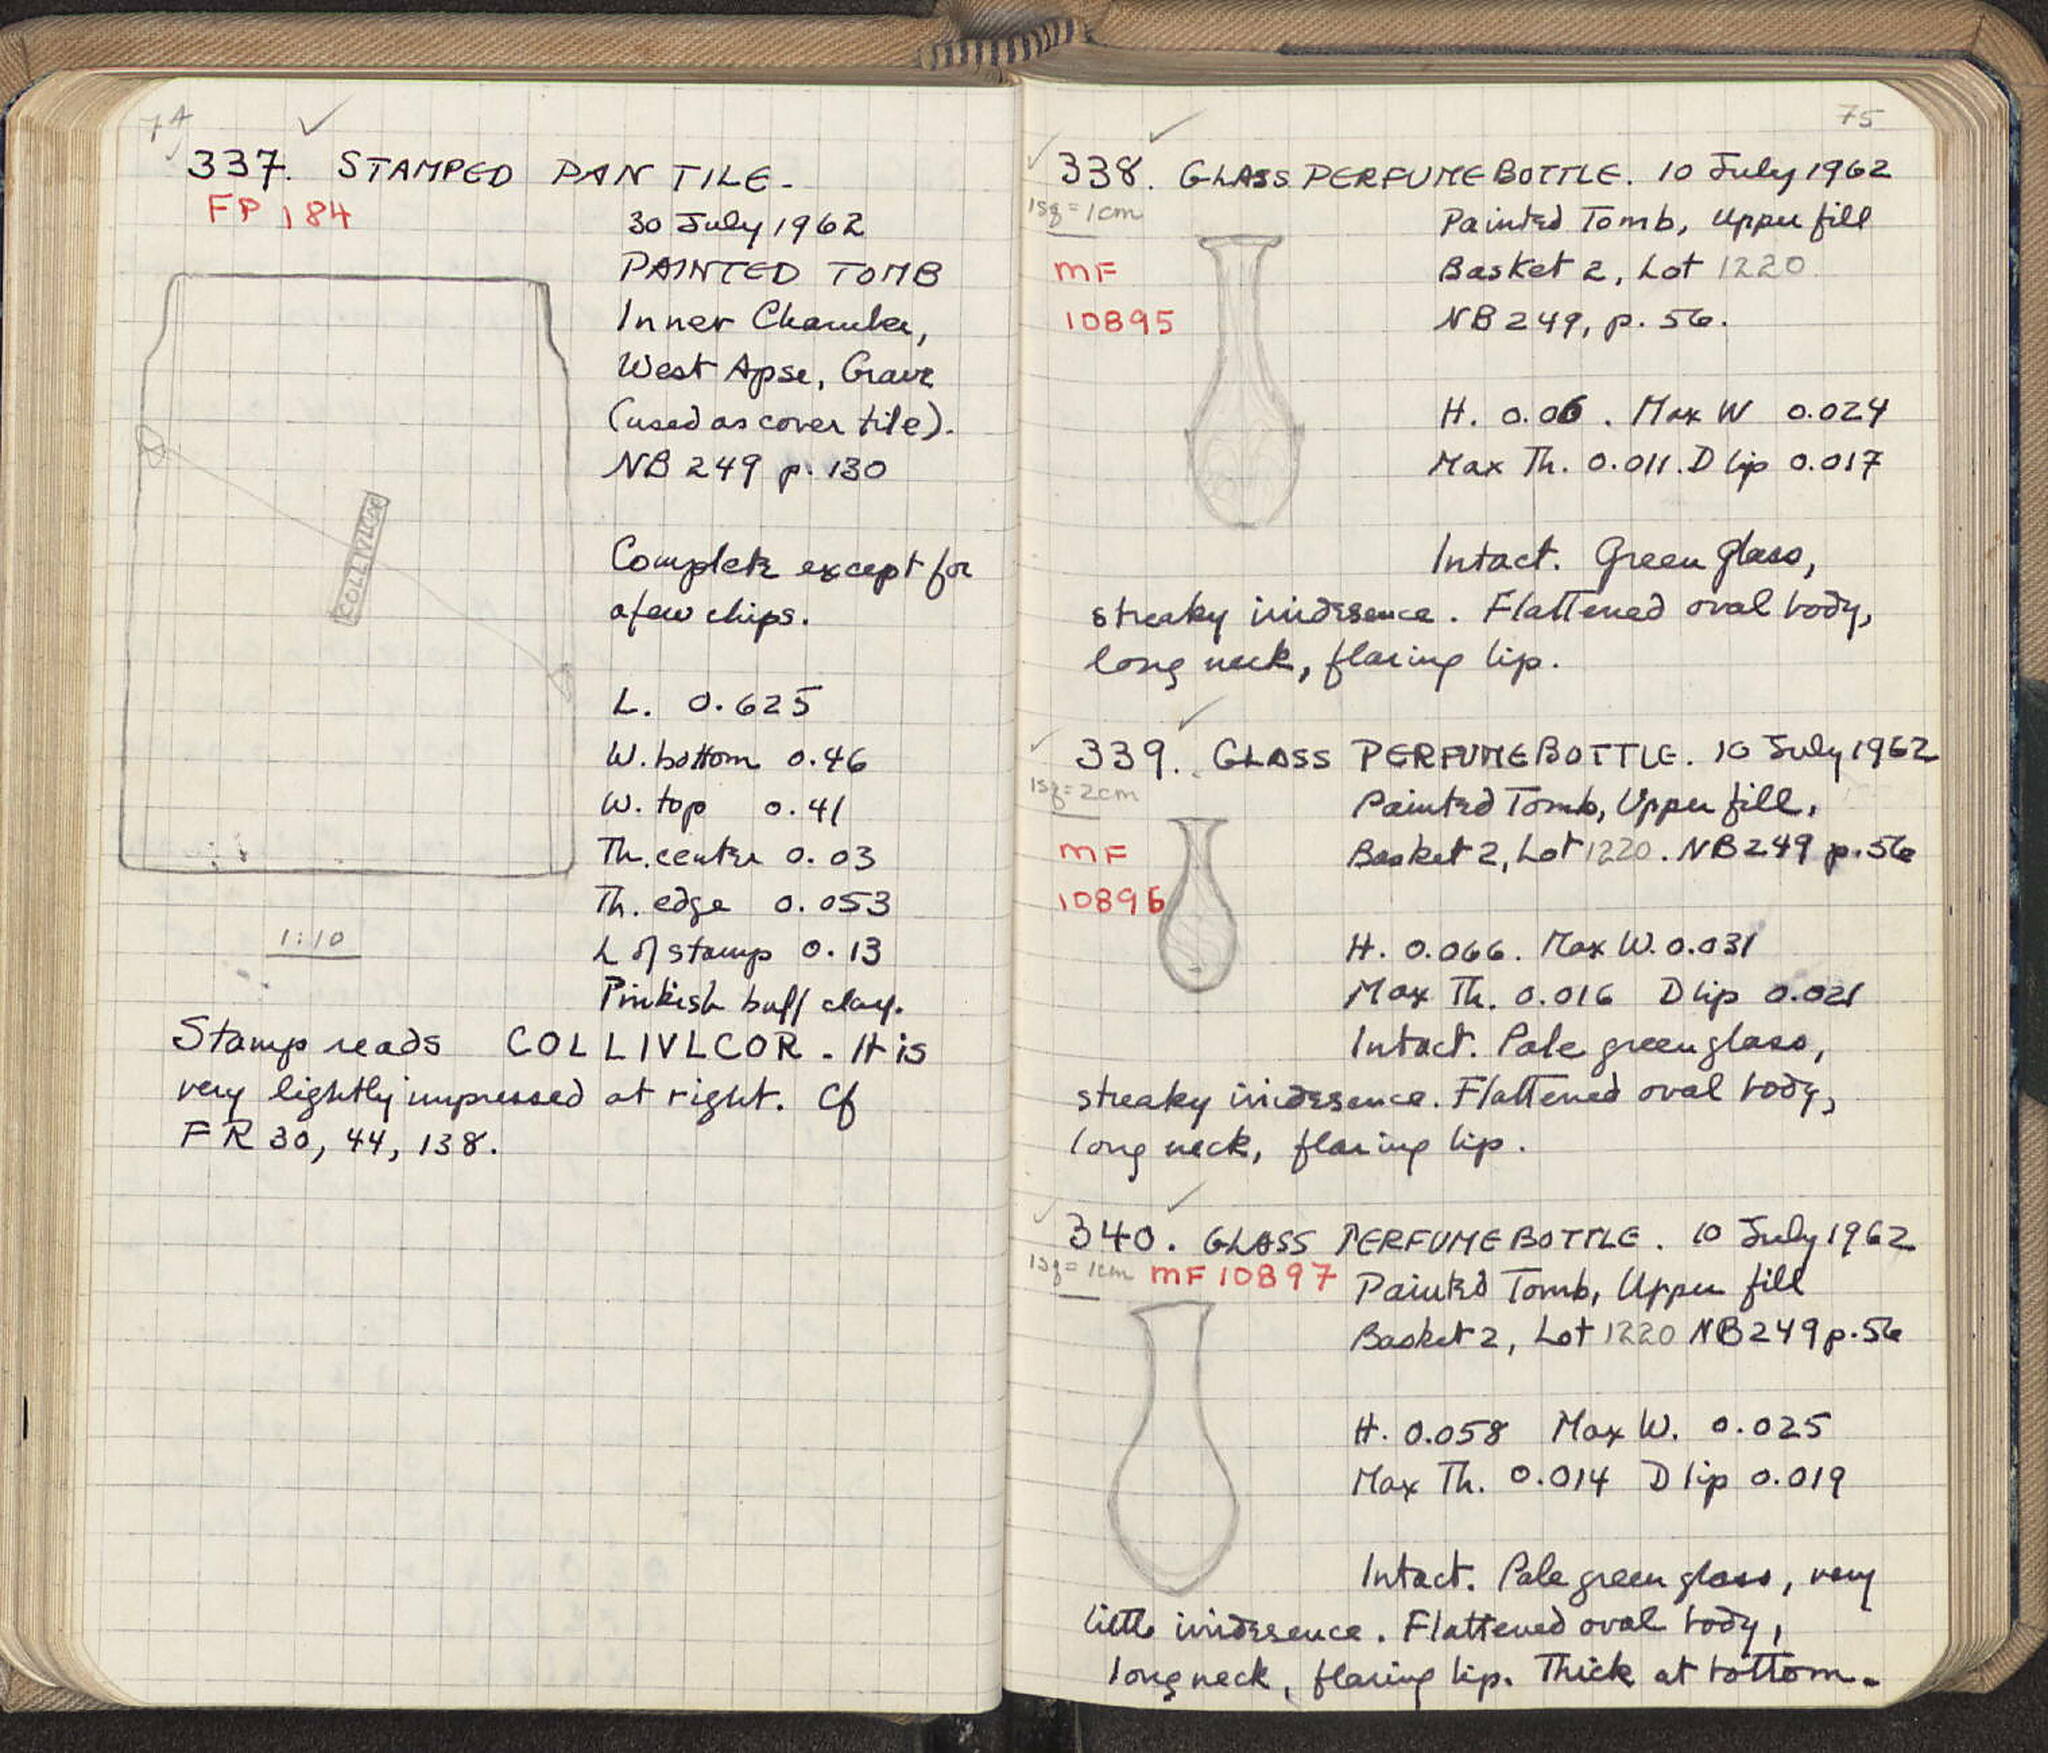 74
337. STAMPED PAN TILE.
FP 184
30 July 1962
PAINTED TOMB
Inner Chamber,
West Apse, Grave
(used as cover tile).
NB 249 p. 130
COLLIVLCOR
Complete except for
a few chips.
L. 0.625
W. bottom 0.46
W. top 0.41
Th. center 0.03
Th. edge 0.053
L of stamp 0.13
Pinkish buff clay.
1:10
Stamp reads COLLIVLCOR. It is
very lightly impressed at right. Cf
FR 30, 44, 138.
75
338. GLASS PERFUME BOTTLE. 10 July 1962
1sq = 1cm
Painted Tomb, Upper fill
MF
Basket 2, Lot 1220
10895
NB 249, p. 56.
H. 0.06. Max W 0.024
Max Th. 0.011. D lip 0.017
Intact. Green glass,
streaky iridesence. Flattened oval body,
long neck, flaring lip.
339. GLASS PERFUME BOTTLE. 10 July 1962
1sq = 2cm
Painted Tomb, Upper fill,
MF
Basket 2, Lot 1220. NB 249 p. 56
10896
H. 0.066. Max W. 0.031
Max Th. 0.016 D lip 0.021
Intact. Pale green glass,
streaky iridesence. Flattened oval body,
long neck, flaring lip.
340. GLASS PERFUME BOTTLE. 10 July 1962
1sq = 1cm MF 10897
Painted Tomb, Upper fill
Basket 2, Lot 1220 NB 249 p. 56
H. 0.058 Max W. 0.025
Max Th. 0.014 D lip 0.019
Intact. Pale green glass, very
little iridesence. Flattened oval body,
long neck, flaring lip. Thick at bottom.